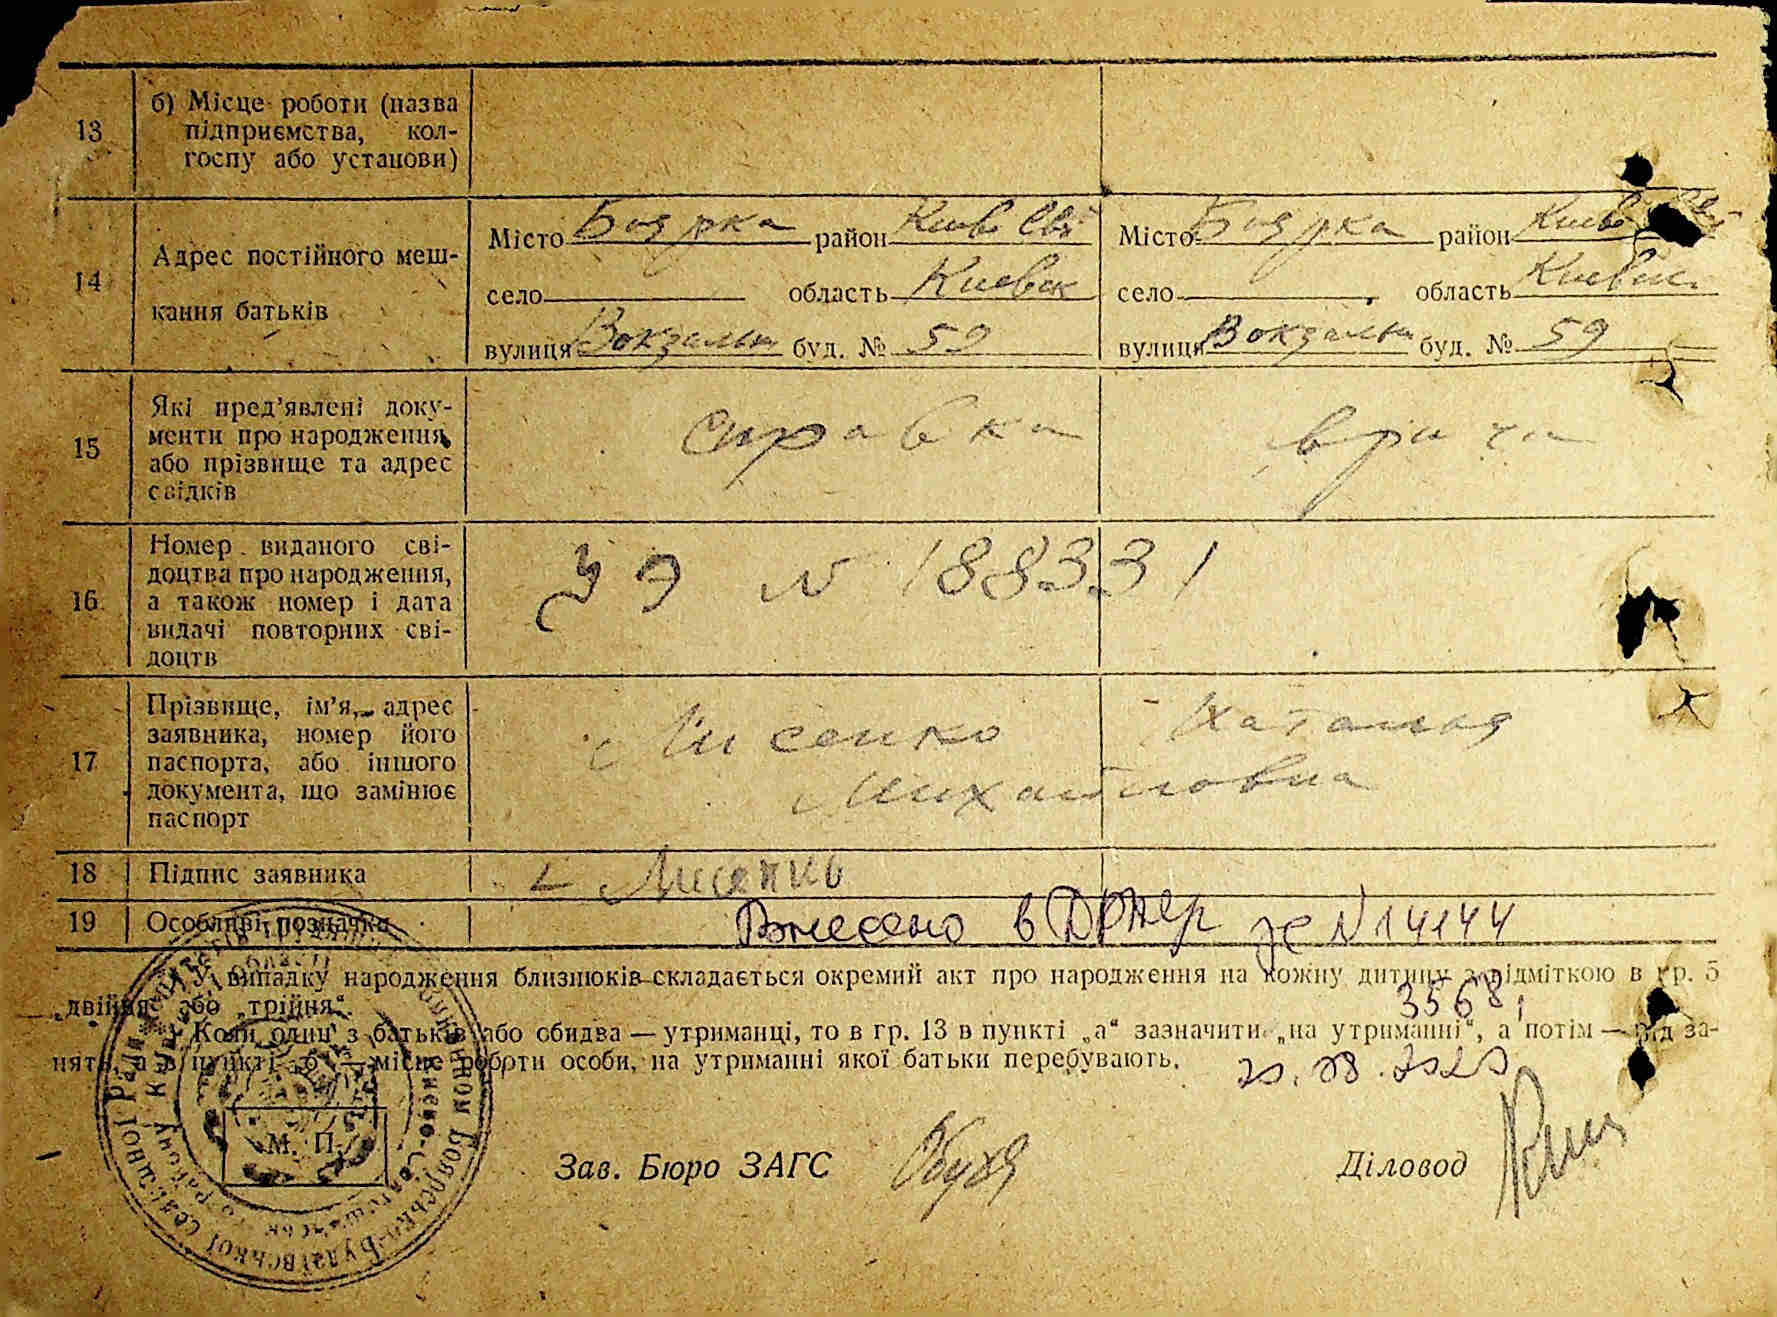 13
б) Місце роботи (назва
підприємства, кол-
госпу або установи)
14
Адрес постійного меш-
кання батьків
Місто Боярка район Києво Свя
село область Киевск
вулиця Вокзальн буд. № 59
Місто Боярка район Києво
село область Киевск.
вулиця Вокзальн буд. № 59
15
Які пред'явлені доку-
менти про народження,
або прізвище та адрес
свідків
справка врача
16
Номер виданого сві-
доцтва про народження,
а також номер і дата
видачі повторних сві-
доцтв
УЭ N 188331
17
Прізвище, ім'я, адрес
заявника, номер його
паспорта, або іншого
документа, що замінює
паспорт
Лисенко Наталья
Михайловна
18 Підпис заявника Лисенко
19 Особливі позначки Внесено в ДРАЦС за N 14144
У випадку народження близнюків складається окремий акт про народження на кожну дитину з відміткою в гр. 5
„двійня" або „трійня".
3568;
Коли один з батьків або обидва — утриманці, то в гр. 13 в пункті „а" зазначити „на утриманні", а потім — рід за-
нять, а в пункті „б" — місце роботи особи, на утриманні якої батьки перебувають.
М. П.
Зав. Бюро ЗАГС
Діловод